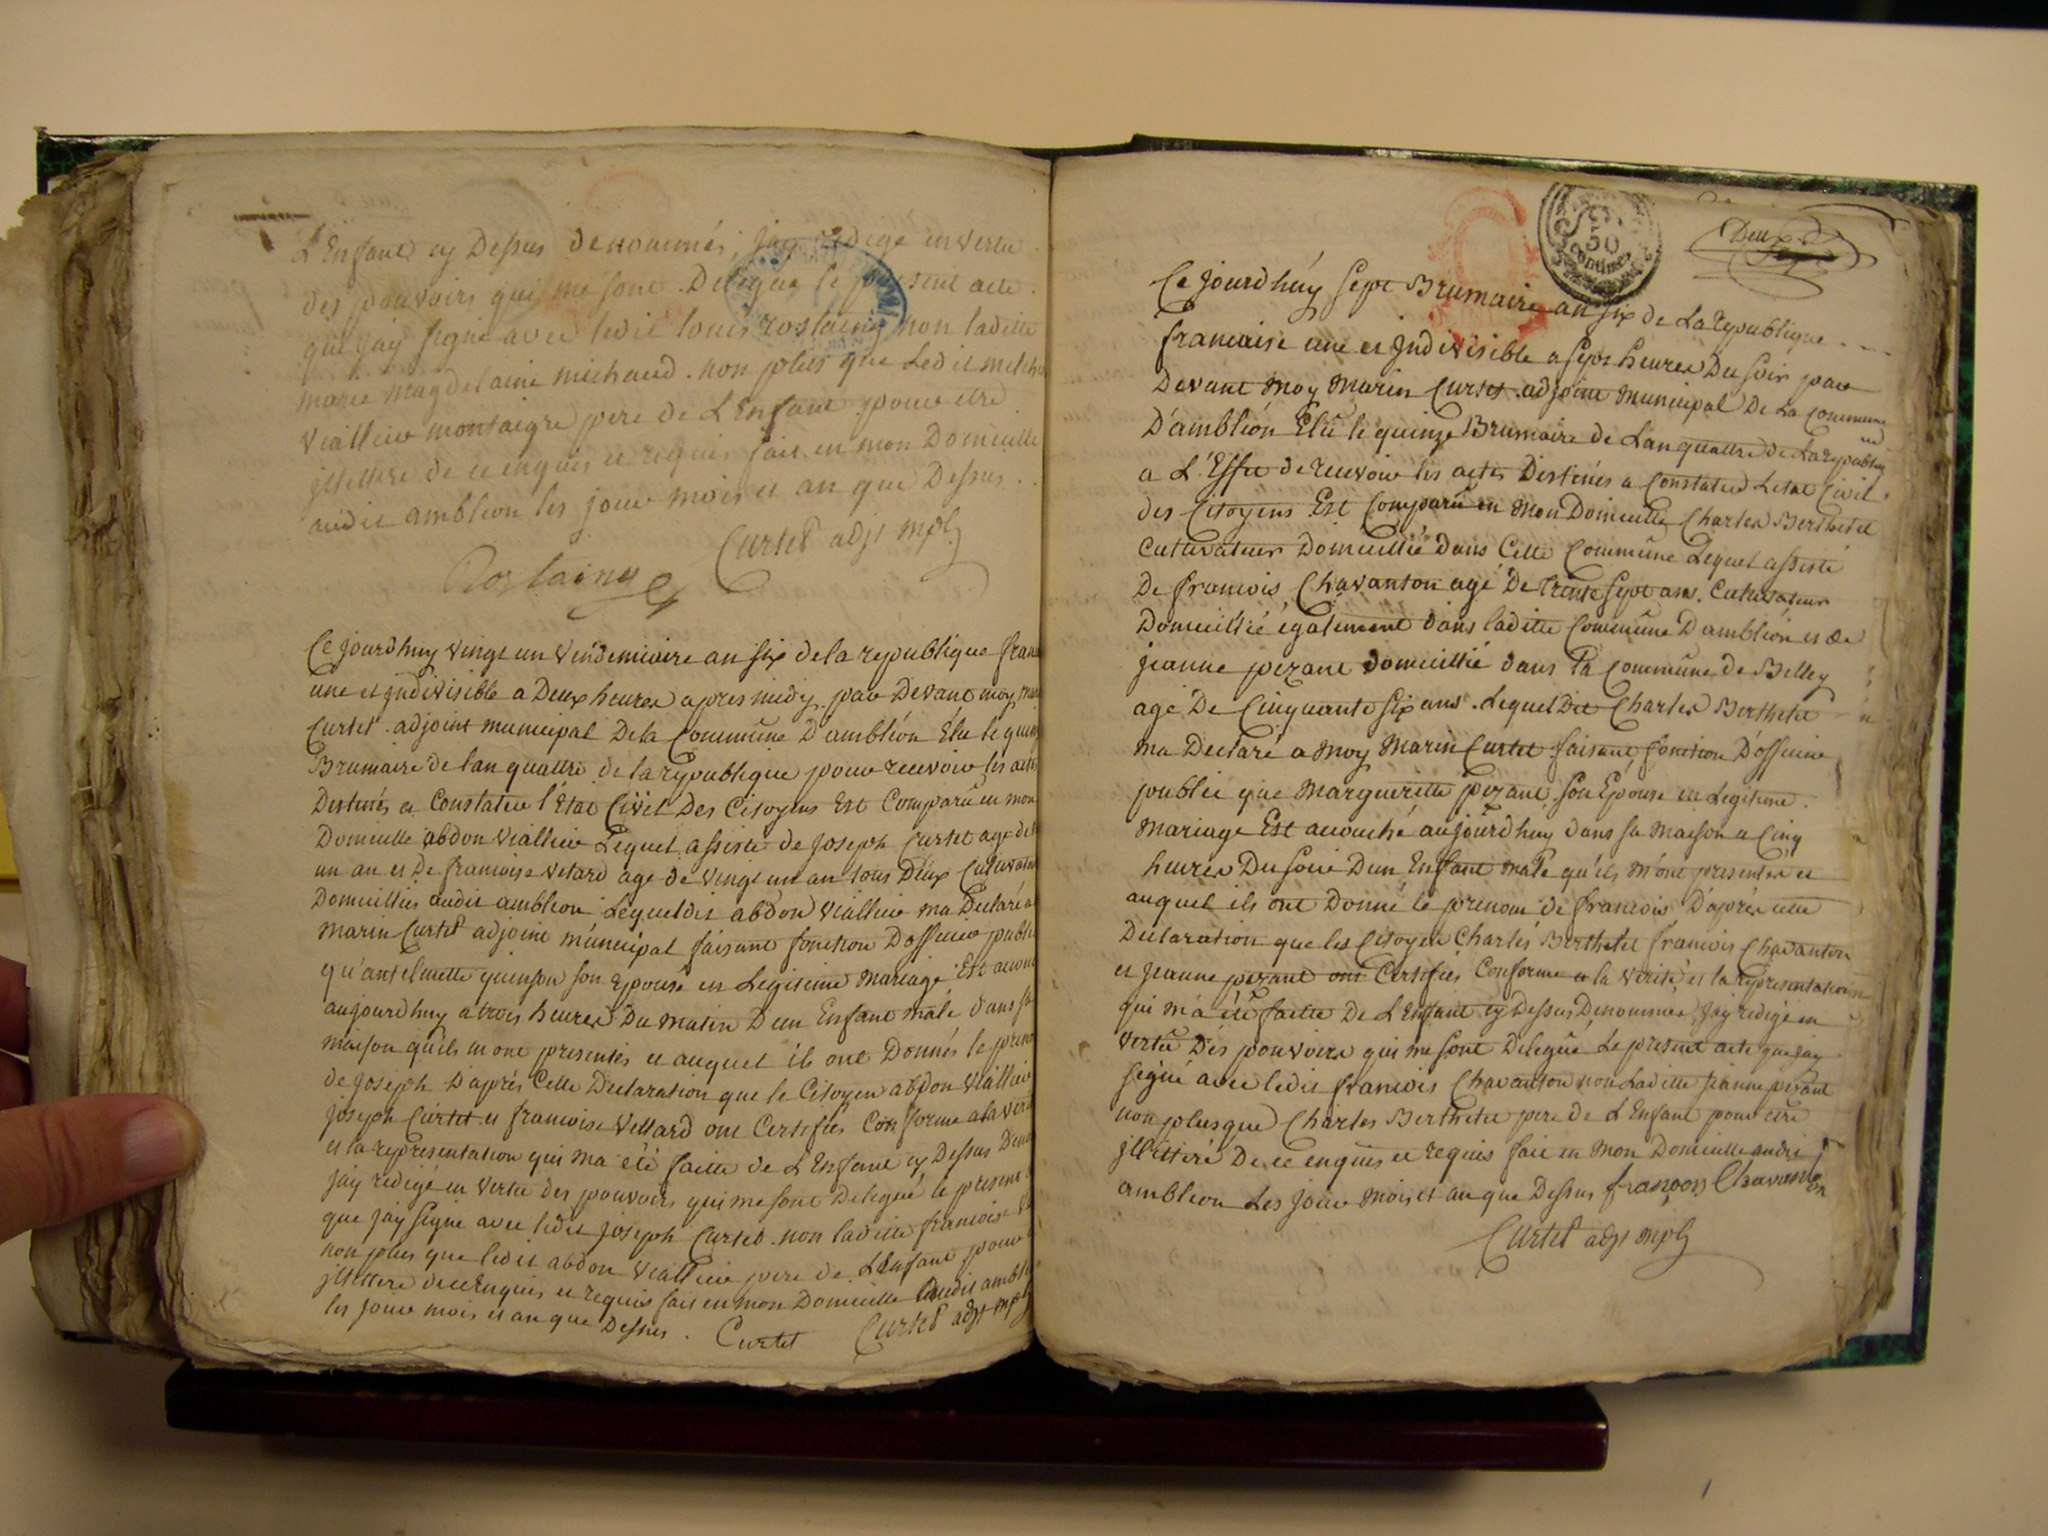 L'Enfant cy Dessus denommés, jay redigé en vertu
des pouvoirs qui me sont Delegué le present acte
que jay signé avec ledit louis rostaing non laditte
marie magdelaine michaud. non plus que Ledit
viallier montaigre pere de L'Enfant pour etre
jllettere de ce enquis et requis fait en mon Domicille
audit amblion les jour mois et an que Dessus.
Curtet adjt mpl
Rostaing
Ce jourdhuy vingt un vendemiaire an six de la republique fran
une et jndivisible a Deux heures apres midy par Devant moy
Curtet adjoint municipal De la Commune D'ambléon Elu le quin
Brumaire de lan quattre de la republique pour recevoir les actes
Destinés a Constater l'Etat Civil Des Citoyens Est Comparu en mon
Domicille abdon viallier Lequel assisté de Joseph Curtet agé de
un an et De francoise vetard agé de vingt un an tous Deux Cultivateur
Domicilliés audit amblion Lequel dit abdon viallier ma Declaré a
marin Curtet adjoint municipal faisant fonction D'officier public
qu'antelmette quinson son Epouse en Legitime mariage Est accou
aujourdhuy a trois heures Du matin D'un Enfant male dans sa
maison qu'ils m ont presentés et auquel ils ont Donnés le preno
de Joseph D'aprés Cette Declaration que le Citoyen abdon viallier
joseph Curtet et francoise Vettard ont Certifiés Conforme a la veri
et la representation qui ma eté faitte de L'Enfant cy Dessus Deno
jay redigé en vertu des pouvoirs qui me sont Delegué le present
que jay signe avec ledit joseph Curtet. non laditte francoise
non plus que ledit abdon viallier pere de L'Enfant pour
jllettere de ce Enquis et requis fait en mon Domicille audit ambl
les jour mois et an que Dessus.
Curtet Curtet adjt mpl
50
Centimes
Deux
Ce jourdhuy sept Brumaire an six de La republique
francaise une et jndivisible a sept heures Du soir par
Devant moy Marin Curtet adjoint municipal De La Commune
D'ambléon Elu le quinze Brumaire de Lan quattre de La republiq
a L'Effet de recevoir les actes Destinés a Constater Letat Civil
des Citoyens Est Comparu en mon Domicille Charles Berthetet
Cultivateur Domicillié dans Cette Commune Lequel assisté
De francois Chavanton agé De trente sept ans. Cultivateur
Domicillié également dans laditte Commune D'ambléon et de
jeanne pezant domicillié dans la Commune de Belley
agé De Cinquante six ans. Lequel Dit Charles Berthetet
ma Declaré a moy Marin Curtet faisant fonction D'officier
public que Margueritte pezant son Epouse en Legitime
Mariage Est accouché aujourdhuy dans sa maison a Cinq
heures Du soir D'un Enfant male qu'ils m'ont presentés et
auquel ils ont Donné le prenom de francois D'aprés cette
Declaration que les Citoyen Charles Berthetet francois Chavanton
et jeanne pezant ont Certifiés Conforme a la verité et la representation
qui m'a été faitte De L'Enfant cy Dessus Denommés, jay redigé en
vertu Des pouvoirs qui me sont Delegué Le present acte que jay
signé avec ledit francois Chavanton non Laditte jeanne pezant
non plus que Charles Berthetet pere De L'Enfant pour etre
jllettéré De ce enquis et requis fait en mon Domicille audit
amblion Les jour mois et an que Dessus françois Chavanton
Curtet adjt mpl